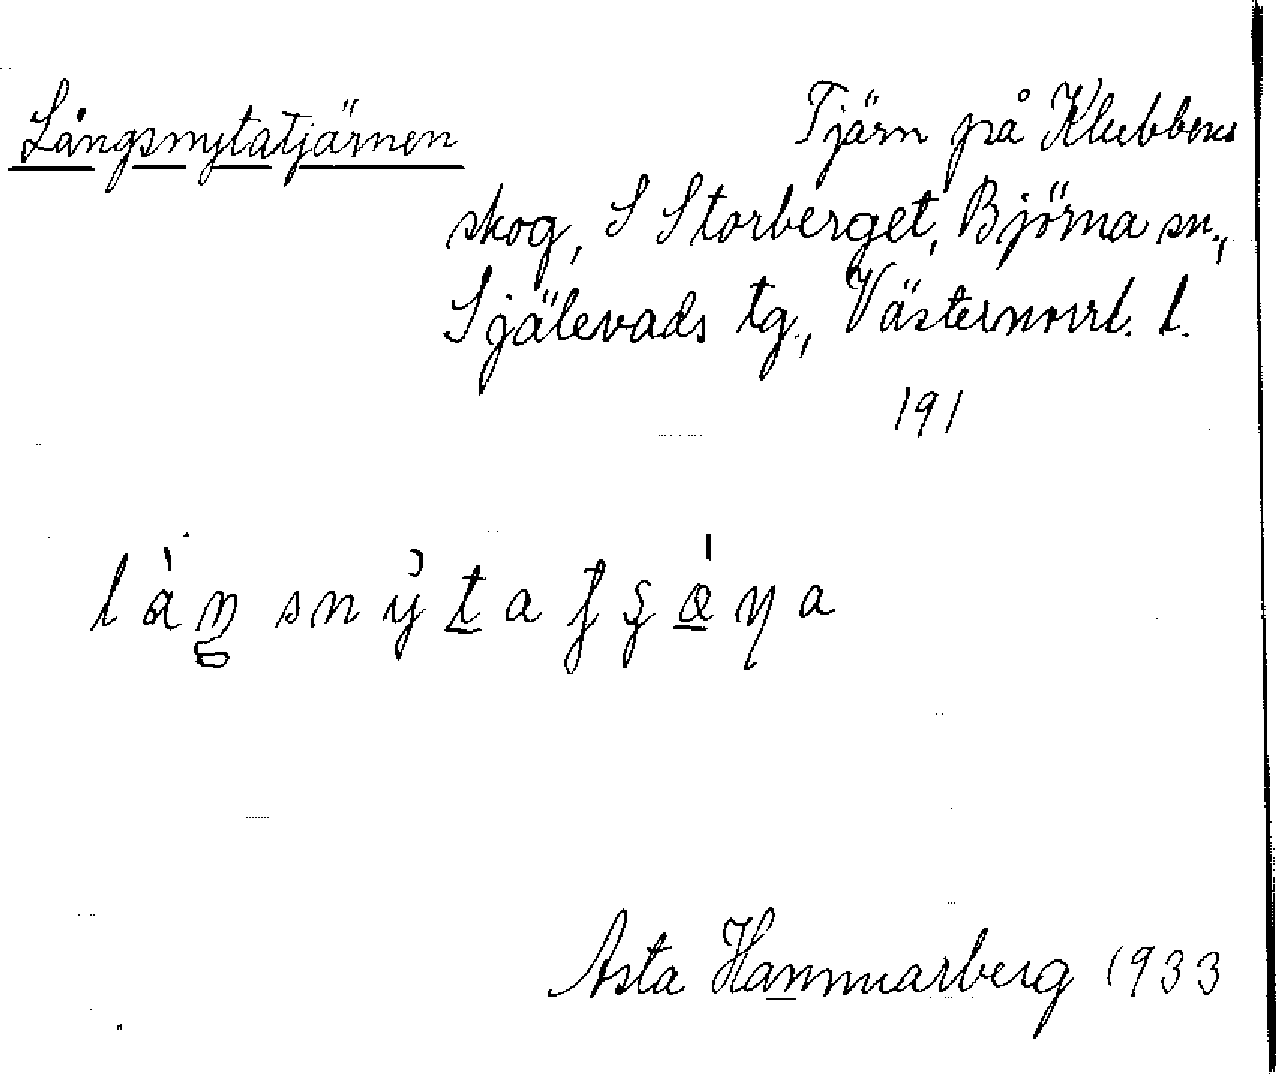 Långsnytatjärnen Tjärn på Klubbens
skog, S Storberget, Björna sn.,
Själevads tg., Västernorrl. l.
191
Asta Hammarberg 1933